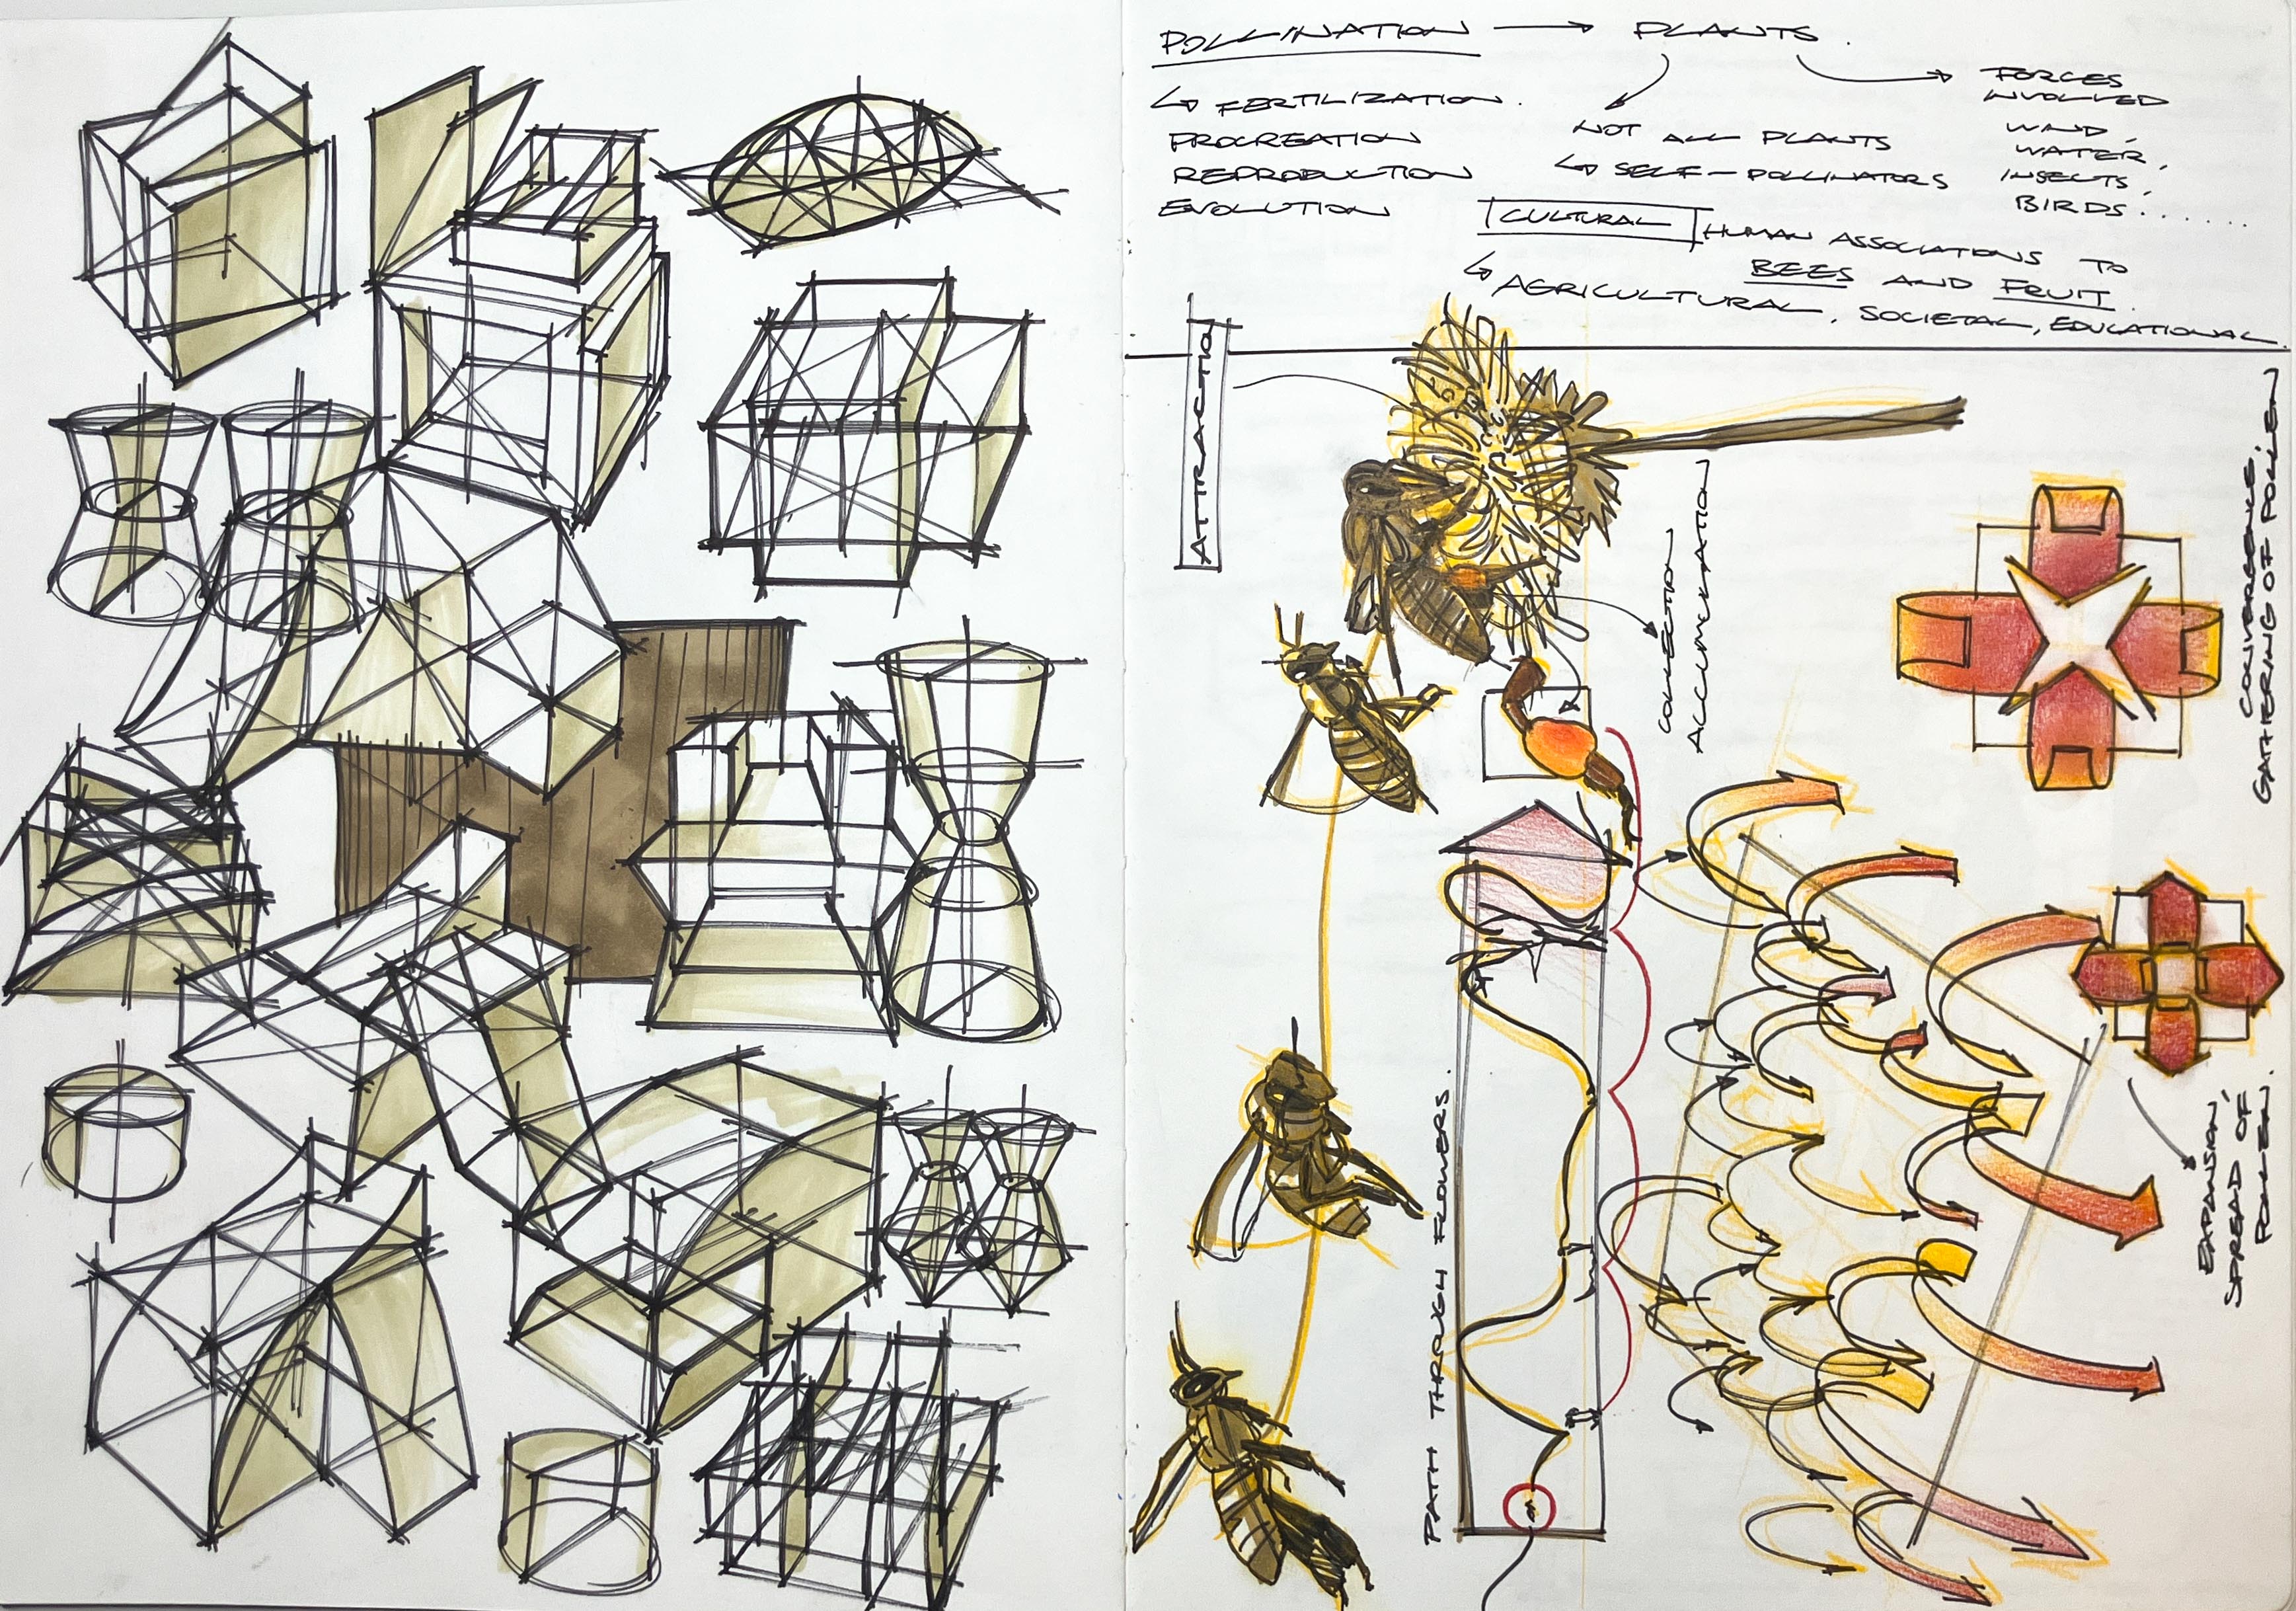 POLLINATION → PLANTS.
↳ FERTILIZATION.
PROCREATION
REPRODUCTION
EVOLUTION
NOT ALL PLANTS
↳ SELF-POLLINATORS
FORCES
INVOLVED
WIND,
WATER,
INSECTS,
BIRDS......
CULTURAL HUMAN ASSOCIATIONS TO
BEES AND FRUIT.
↳ AGRICULTURAL, SOCIETAL, EDUCATIONAL.
ATTRACTION
COLLECTION
ACCUMULATION
CONVERGENCE,
GATHERING OF POLLEN
PATH THROUGH FLOWERS.
EXPANSION,
SPREAD OF
POLLEN.